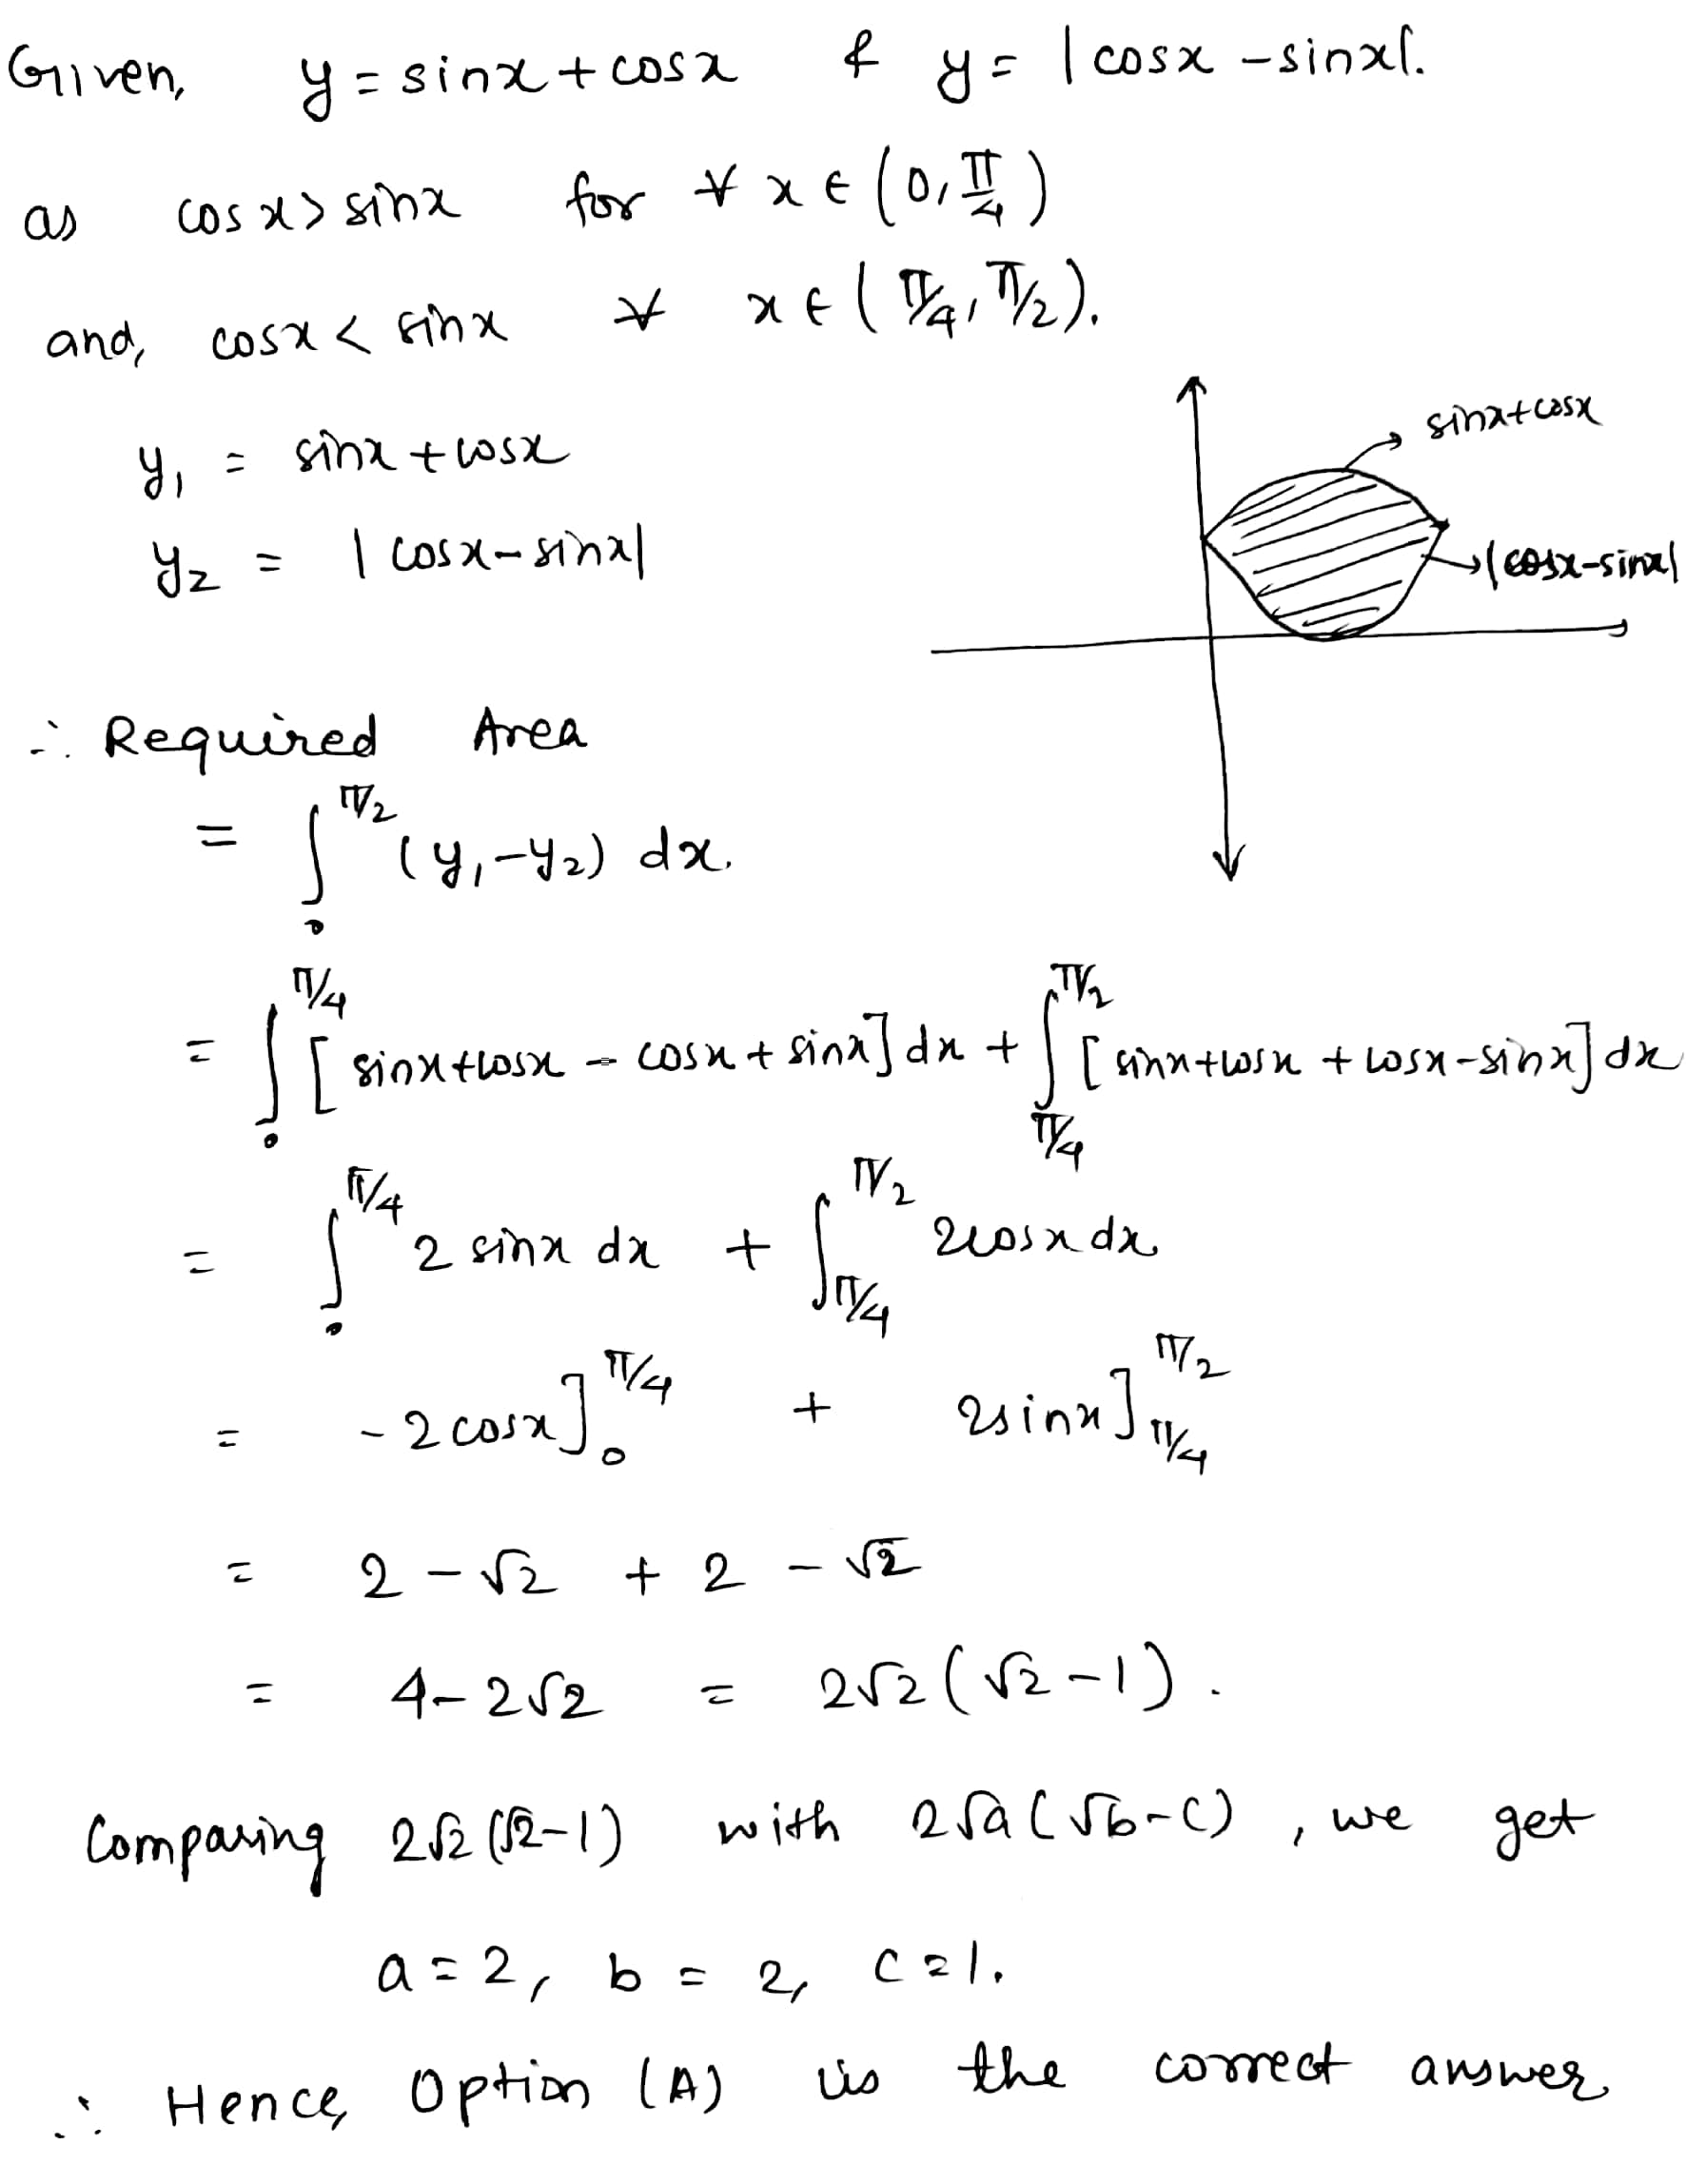 Given, y = sinx + cosx & y = |cosx - sinx|.
as cosx > sinx for ∀ x ∈ (0, π/4)
and, cosx < sinx ∀ x ∈ (π/4, π/2).
sinx + cosx
y₁ = sinx + cosx
|cosx - sinx|
y₂ = |cosx - sinx|
∴ Required Area
= ∫₀^{π/2} (y₁ - y₂) dx.
= ∫₀^{π/4} [sinx + cosx - cosx + sinx] dx + ∫_{π/4}^{π/2} [sinx + cosx + cosx - sinx] dx
= ∫₀^{π/4} 2 sinx dx + ∫_{π/4}^{π/2} 2cosx dx
= -2 cosx]₀^{π/4} + 2sinx]_{π/4}^{π/2}
= 2 - √2 + 2 - √2
= 4 - 2√2 = 2√2 (√2 - 1).
Comparing 2√2 (√2 - 1) with 2√a (√b - c), we get
a = 2, b = 2, c = 1.
∴ Hence, Option (A) is the correct answer